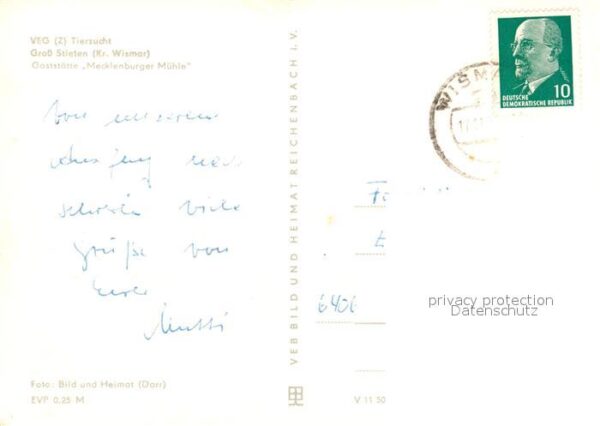 VEG (Z) Tierzucht
Groß Stieten (Kr. Wismar)
Gaststätte „Mecklenburger Mühle"
Von unserem
Ausflug nach
Schwerin viele
Grüße von
Eurer
Mutti
Foto: Bild und Heimat (Darr)
EVP 0,25 M
VEB BILD UND HEIMAT REICHENBACH I. V.
V 11 50
WISMA
10
DEUTSCHE
DEMOKRATISCHE REPUBLIK
F
E
6406
privacy protection
Datenschutz